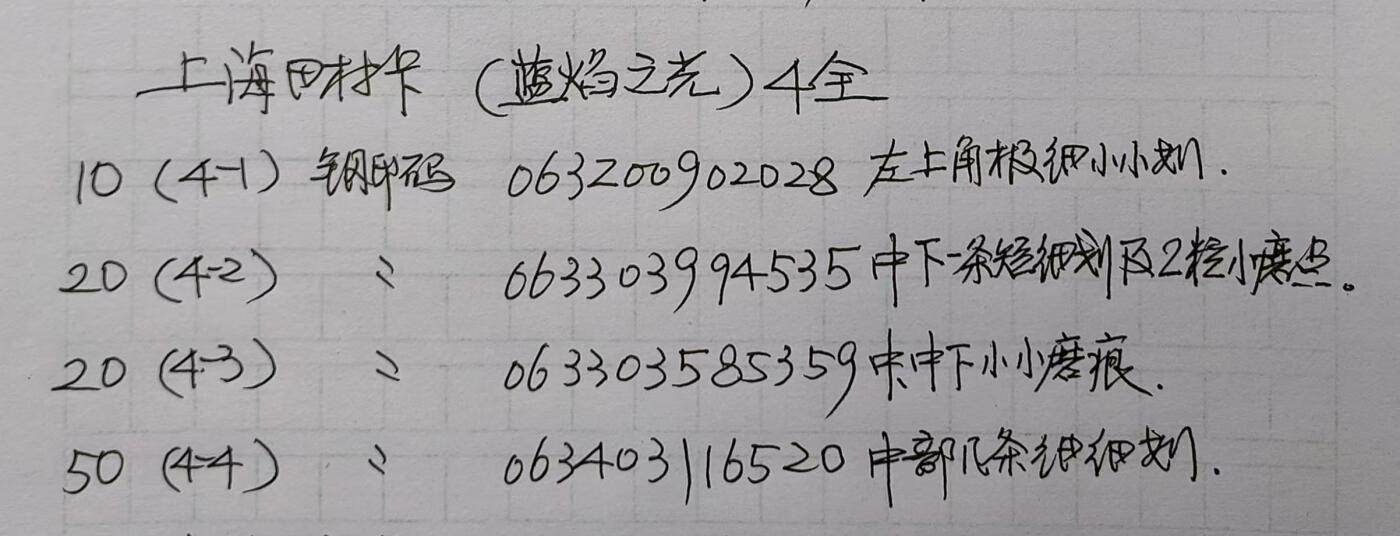 上海田村卡（蓝焰之光）4全
10（4-1）钢印码 063200902028 左上角极细小小划.
20（4-2） 〃 063303994535 中下一条短细划及2粒小磨点。
20（4-3） 〃 063303585359 中、中下小小磨痕.
50（4-4） 〃 063403116520 中部几条细细划.